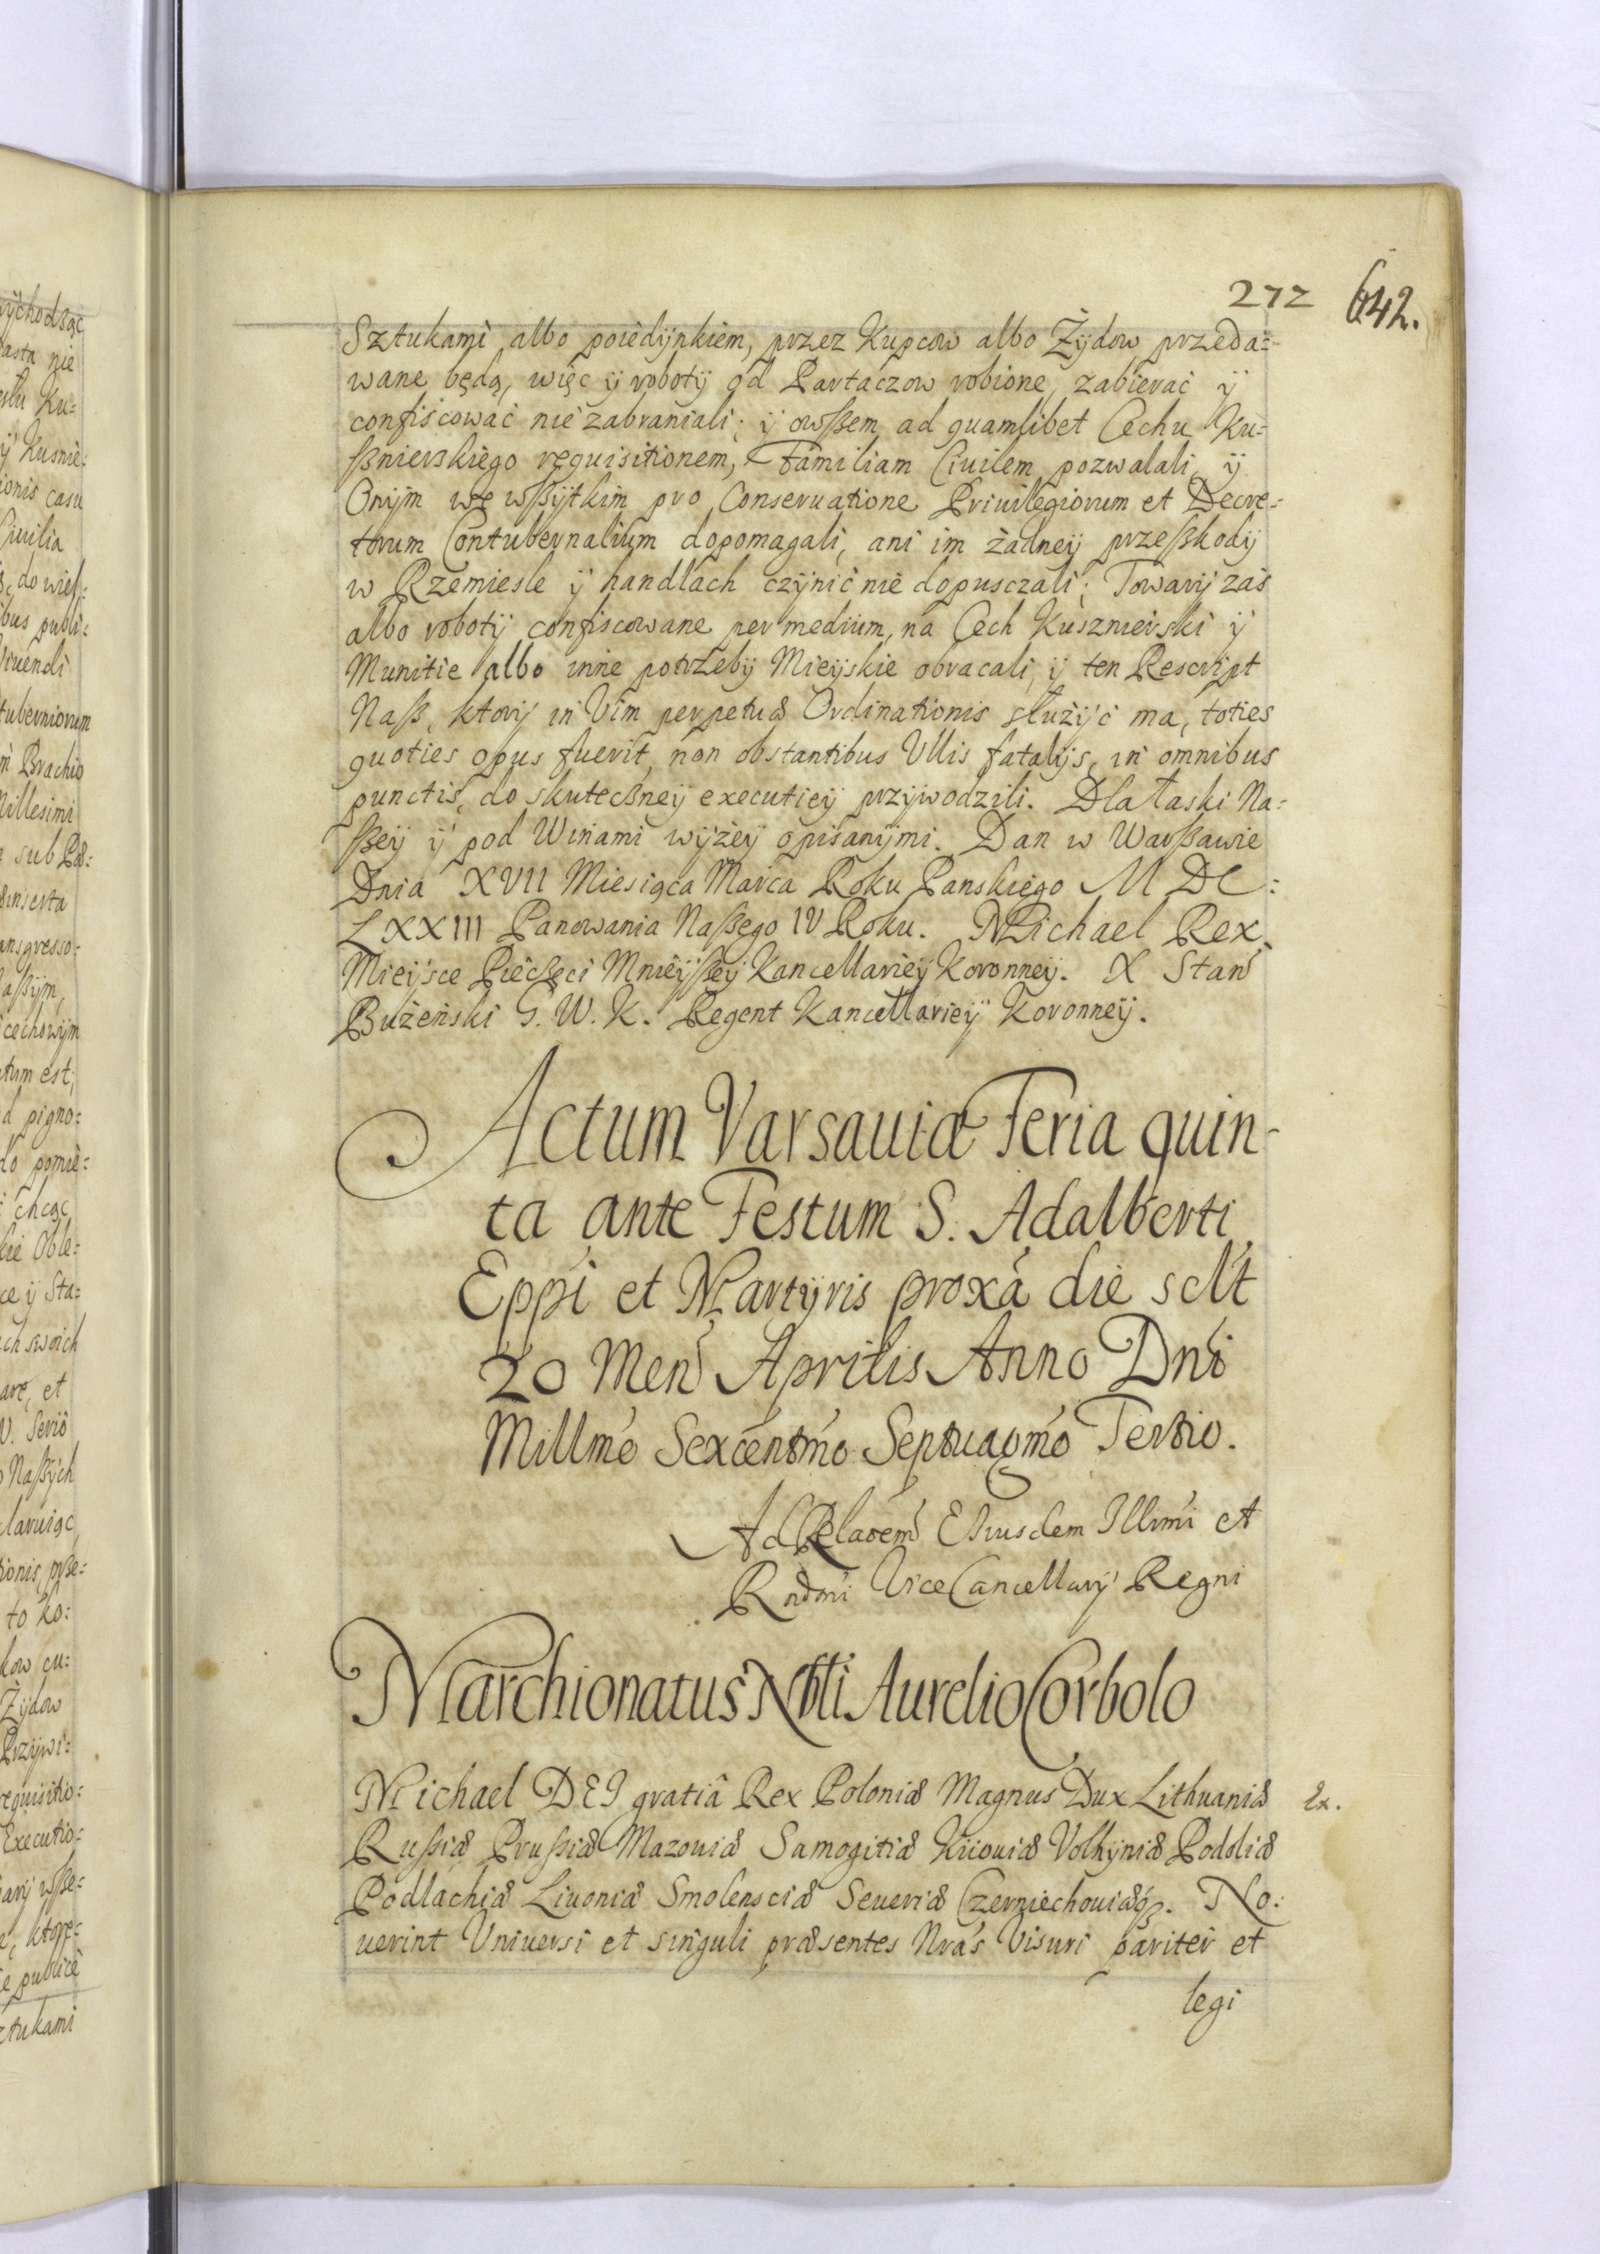 272 642.
Sztukami, albo poiedÿnkiem, przez Kupcow albo Żÿdow przeda=
wane będą, więc ÿ robotÿ od Partaczow robione, zabierać ÿ
confiscować nie zabraniali; ÿ owßem ad quamlibet Cechu Ku=
ßnierskiego requisitionem, Familiam Ciuilem pozwalali, ÿ
Onÿm we wßÿtkim pro Conseruatione Priuilegiorum et Decre=
torum Contubernalium dopomagali, ani im żadneÿ przeßkodÿ
w Rzemiesle ÿ handlach czÿnić nie dopusczali; Towarÿ zaś
albo robotÿ confiscowane per medium, na Cech Kusznierski ÿ
Munitie albo inne potrzebÿ Mieÿskie obracali, ÿ ten Rescript
Naß, ktorÿ in Vim perpetuæ Ordinationis służÿć ma, toties
quoties opus fuerit, non obstantibus Vllis fatalÿs, in omnibus
punctis, do skutecßneÿ executieÿ przÿwodzili. Dla łaski Na=
ßeÿ ÿ pod Winami wÿżeÿ opisanÿmi. Dan w Warßawie
Dnia XVII Miesiąca Marca Roku Panskiego M DC:
LXXIII Panowania Naßego IV Roku. Michael Rex.
Mieÿsce Piecßęci Mnieÿßeÿ Kancellarieÿ Koronneÿ. X Stan
Bużeński G. W. K. Regent Kancellarieÿ Koronneÿ.
Actum Varsauiæ Feria quin-
ta ante Festum S. Adalberti
Eppi et Martÿris proxa die sclt
20 Men Aprilis Anno Dni
Millmo Sexcentmo Septuagmo Tertio.
Ad Relaoem Eiusdem Illmi et
Rndmi ViceCancellarÿ Regni
Marchionatus Nbli Aurelio Corbolo
Michael DEI gratiâ Rex Poloniæ Magnus Dux Lithuaniæ Ex.
Rußiæ Prußiæ Mazouiæ Samogitiæ Kiiouiæ Volhÿniæ Podoliæ
Podlachiæ Liuoniæ Smolensciæ Seueriæ Czerniechouiæq́3. No:
uerint Vniuersi et singuli præsentes Nras Visuri pariter et
legi